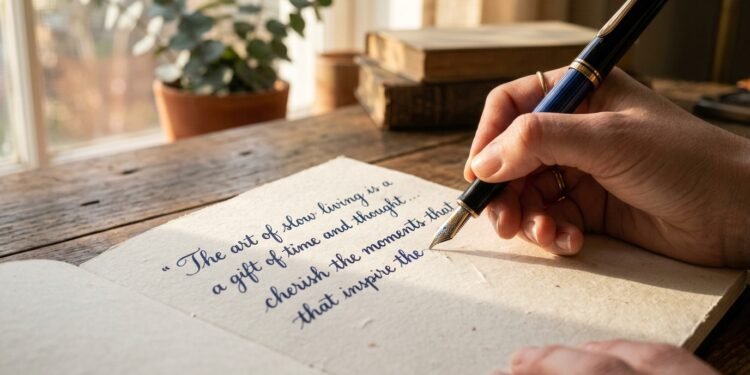 "The art of slow living is a
a gift of time and thought...
cherish the moments that
that inspire the